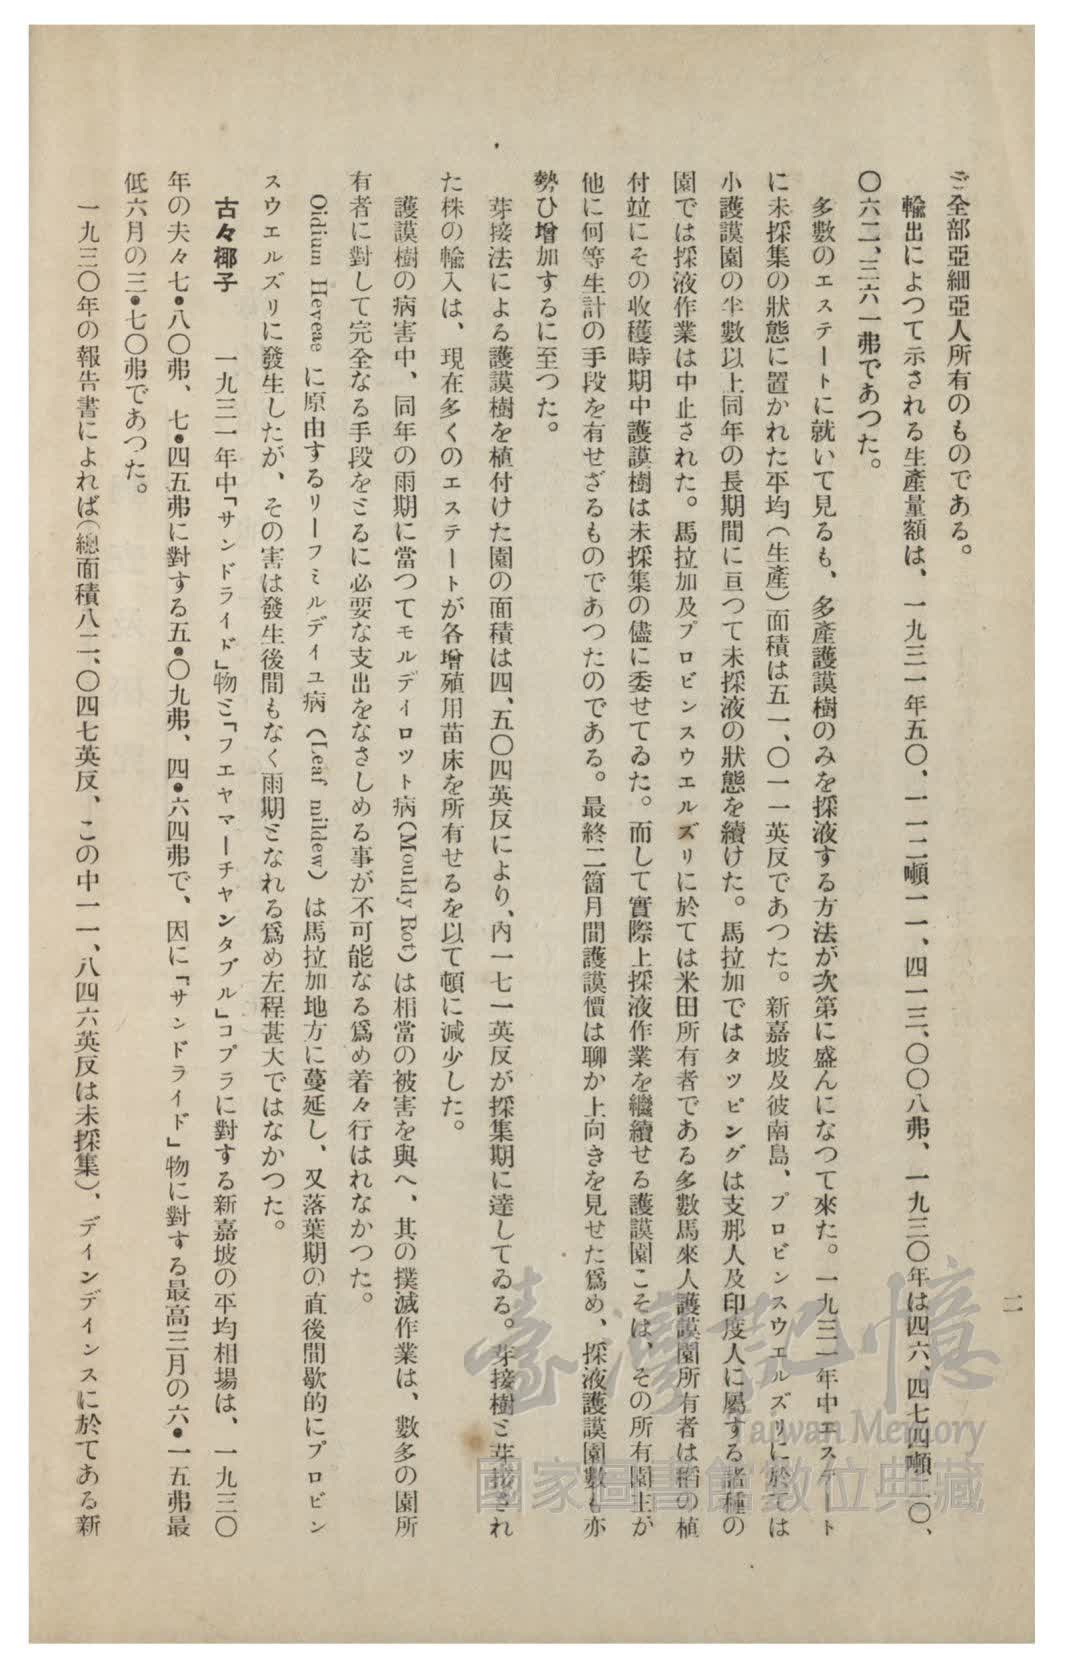 ど全部亞細亞人所有のものである。
輸出によつて示される生產量額は、一九三一年五〇、一一二噸一一、四一三、〇〇八弗、一九三〇年は四六、四七四噸二〇、
〇六二、三六一弗であつた。
多數のエステートに就いて見るも、多產護謨樹のみを採液する方法が次第に盛んになつて來た。一九三一年中エステート
に未採集の狀態に置かれた平均（生產）面積は五一、〇一一英反であつた。新嘉坡及彼南島、プロビンスウエルズリに於ては
小護謨園の半數以上同年の長期間に亘つて未採液の狀態を續けた。馬拉加ではタツピングは支那人及印度人に屬する諸種の
園では採液作業は中止された。馬拉加及プロビンスウエルズリに於ては米田所有者である多數馬來人護謨園所有者は稻の植
付竝にその收穫時期中護謨樹は未採集の儘に委せてゐた。而して實際上採液作業を繼續せる護謨園こそは、その所有園主が
他に何等生計の手段を有せざるものであつたのである。最終二箇月間護謨價は聊か上向きを見せた爲め、採液護謨園數も亦
勢ひ增加するに至つた。
芽接法による護謨樹を植付けた園の面積は四、五〇四英反により、內一七一英反が採集期に達してゐる。芽接樹と芽接され
た株の輸入は、現在多くのエステートが各增殖用苗床を所有せるを以て頓に減少した。
護謨樹の病害中、同年の雨期に當つてモルデイロツト病（Mouldy Rot）は相當の被害を與へ、其の撲滅作業は、數多の園所
有者に對して完全なる手段をとるに必要な支出をなさしめる事が不可能なる爲め着々行はれなかつた。
Oidium Heveae に原由するリーフミルデイユ病（Leaf mildew）は馬拉加地方に蔓延し、又落葉期の直後間歇的にプロビン
スウエルズリに發生したが、その害は發生後間もなく雨期となれる爲め左程甚大ではなかつた。
古々椰子　一九三一年中「サンドライド」物と「フエヤマーチャンタブル」コプラに對する新嘉坡の平均相場は、一九三〇
年の夫々七・八〇弗、七・四五弗に對する五・〇九弗、四・六四弗で、因に「サンドライド」物に對する最高三月の六・一五弗最
低六月の三・七〇弗であつた。
一九三〇年の報告書によれば（總面積八二、〇四七英反、この中一一、八四六英反は未採集）、デインデインスに於てある新
二
臺灣記憶
Taiwan Memory
國家圖書館數位典藏